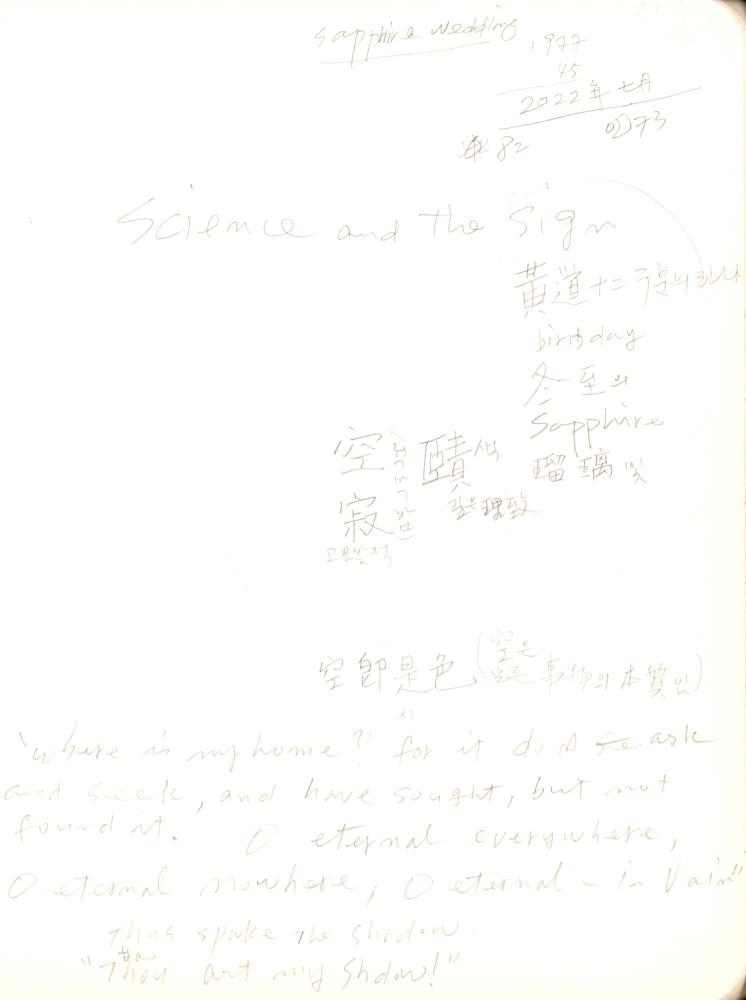 sapphire wedding
1977
45
2022年 七月
82 73
Science and the Sign
黃道十二 구분의 하나
birthday
冬至의
Sapphire
瑠璃 빛
空 (적막함) 賾 색
寂 깊은 理致
고요할 적
空卽是色 (空은
모든 事物의 本質인)
시
'where is my home?' for it do I ask
and seek, and have sought, but not
found it. O eternal everywhere,
O eternal nowhere, O eternal - in Vain"
thus spake the shadow.
"Thou art my Shdow!"